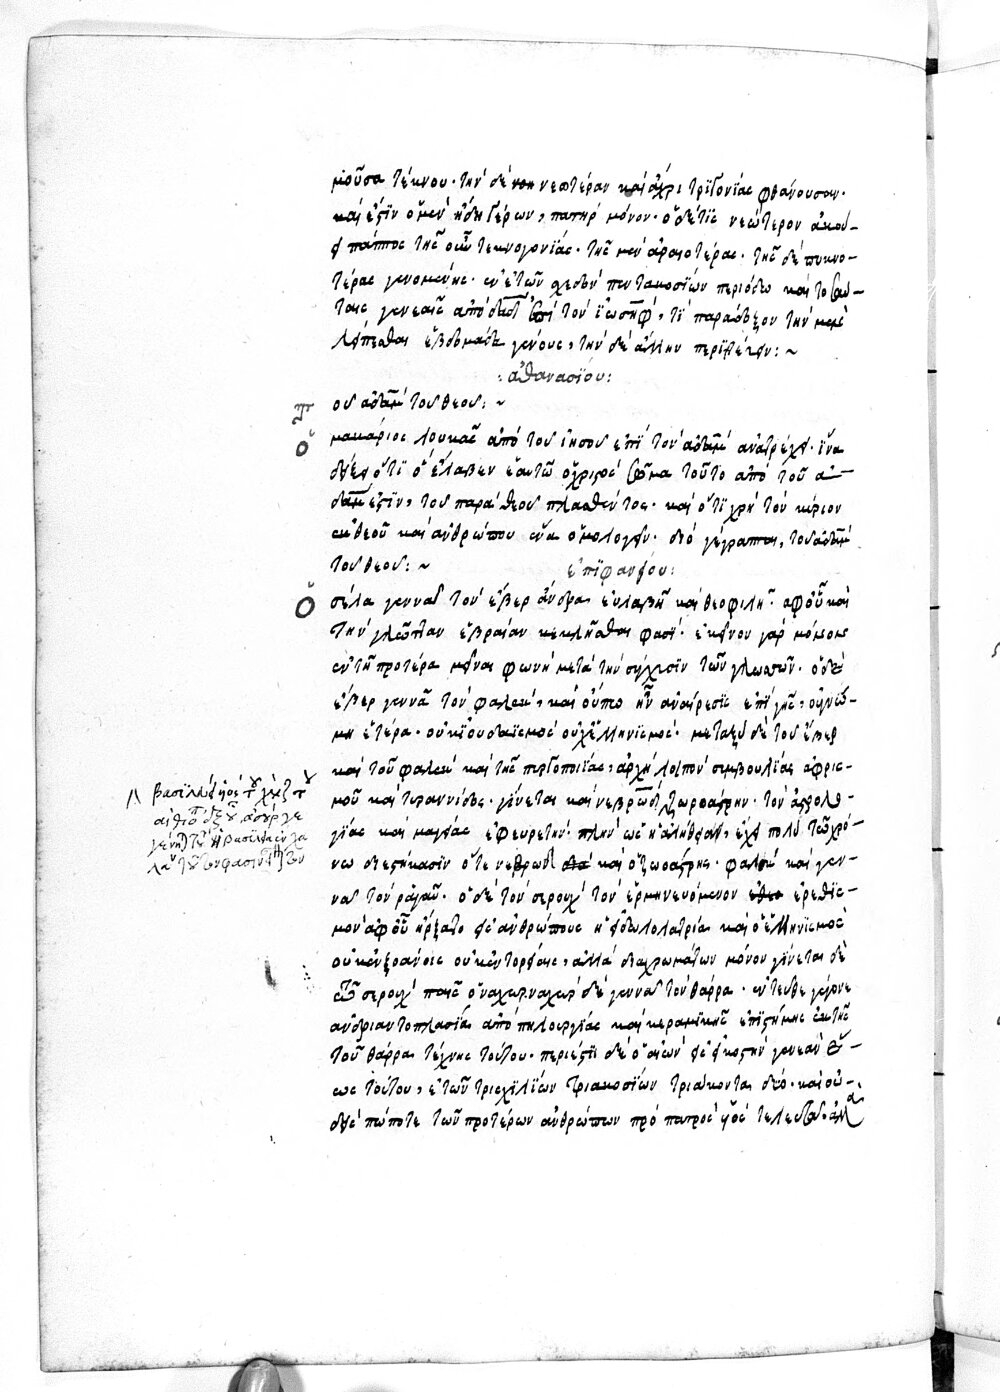 μιοῦσα τέκνου· τὴν δὲ νεωτέραν καὶ ἄχρι τριγονίας φθάνουσαν·
καὶ ἐστὶν ὁ μὲν ἤδη γέρων, πατὴρ μόνον· ὁ δέ τις νεώτερον ἀκού-
ει πάππος τῆς τεκνογονίας· τῆς μὲν ἀραιοτέρας· τῆς δὲ πυκνο-
τέρας γενομένης· ἐν ἐτῶν σχεδὸν πεντακοσίων περιόδω καὶ το
ταις γενεαῖς ἀπὸ δαδ ἐπὶ τὸν ἰωσὴφ, τί παράδοξον τὴν μὲν
λείπεσθαι ἑβδομάδα γένους, τὴν δὲ ἄλλην περιττεύειν:~
:ἀθανασίου:
ου ἀδὰμ τοῦ θεοῦ:~
Ὁ μακάριος λουκᾶς ἀπὸ τοῦ ἰησοῦ ἐπὶ τὸν ἀδὰμ ἀνατρέχει· ἵνα
δείξει ὅτι ὃ ἔλαβεν ἑαυτῶ ὁ χριστὸς σῶμα τοῦτο ἀπὸ τοῦ α-
δάμ ἐστιν, τοῦ παρὰ θεοῦ πλασθέντος· καὶ ὅτι χρὴ τὸν κύριον
ἐκ θεοῦ καὶ ἀνθρώπου ἕνα ὁμολογεῖν· διὸ γέγραπται, τοῦ ἀδὰμ
τοῦ θεοῦ:~ ἐπιφανίου:
Ὁ σέλα γεννᾶ τὸν ἔβερ ἄνδρα εὐλαβῆ καὶ θεοφιλῆ· ἀφ οὗ καὶ
τὴν γλῶτταν ἑβραίαν κεκλῆσθαι φασὶ· ἐκείνου γὰρ μόνον
ἐν τῆ προτέρα μεῖναι φωνῆ μετὰ τὴν σύγχισιν τῶν γλωσσῶν· ὁ δὲ
ἔβερ γεννᾶ τὸν φαλὲκ, καὶ οὔπω ἦν αἵρεσις ἐπὶ γῆς, οὐ γνώ-
μη ἑτέρα· οὐκ ἰουδαϊσμὸς οὐχ ἑλληνισμός· μεταξὺ δὲ τοῦ ἔβερ
καὶ τοῦ φαλὲκ καὶ τῆς πυργοποιίας, ἀρχὴ λοιπὸν συμβουλίας ἀφρισ-
μοῦ καὶ τυραννίδος· γίνεται καὶ νεβρὼδ ζωροάστρην· τὸν ἀστρολο-
γίας καὶ μαγείας ἐφευρετὴν· πλὴν ὡς ἡ ἀλήθεια, ἔχει πολὺ τῶ χρό-
νω διεστήκασιν ὅ τε νεβρὼδ καὶ ὁ ζωροάστρης· φαλὲκ καὶ γεν-
νᾶ τὸν ῥαγαῦ· ὁ δὲ τὸν σεροὺχ τὸν ἑρμηνευόμενον ἐρεθισ-
μὸν ἀφ οὗ ἤρξατο εἰς ἀνθρώπους ἡ εἰδωλολατρία καὶ ὁ ἑλληνισμὸς
οὐκ ἐν ξοάνοις οὐκ ἐν τορείαις, ἀλλὰ διὰ χρωμάτων μόνον γίνεται δὲ
σεροὺχ παῖς ὁ ναχὼρ, ναχὼρ δὲ γεννᾶ τὸν θάρρα· ἐντεῦθεν γέγονε
ἀνδριαντοπλασία ἀπὸ πηλουργίας καὶ κεραμικῆς ἐπιστήμης ἐκ τῆς
τοῦ θάρρα τέχνης τούτου· περιέστι δὲ ὁ αἰὼν εἰς εἰκοστὴν γενεὰν ἕ-
ως τούτου, ἐτῶν τρισχιλίων τριακοσίων τριάκοντα δύο· καὶ οὐ-
δεὶς πώποτε τῶν προτέρων ἀνθρώπων πρὸ πατρὸς υἱὸς τελευτᾶ· ἀλλ